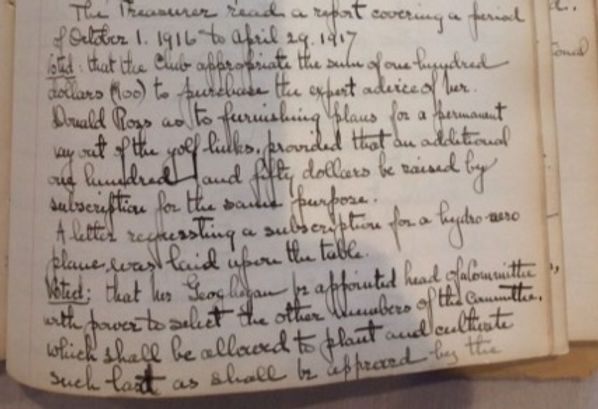 The Treasurer read a report covering a period
of October 1. 1916 to April 29. 1917
Voted: that the Club appropriate the sum of one hundred
dollars ($100) to purchase the expert advice of Mr.
Donald Ross as to furnishing plans for a permanent
lay out of the golf links, provided that an additional
one hundred and fifty dollars be raised by
subscription for the same purpose.
A letter requesting a subscription for a hydro-aero
plane, was laid upon the table.
Voted: that Mr Geoghegan be appointed head of a Committee
with power to select the other members of the Committee,
which shall be allowed to plant and cultivate
such as shall be approved by the